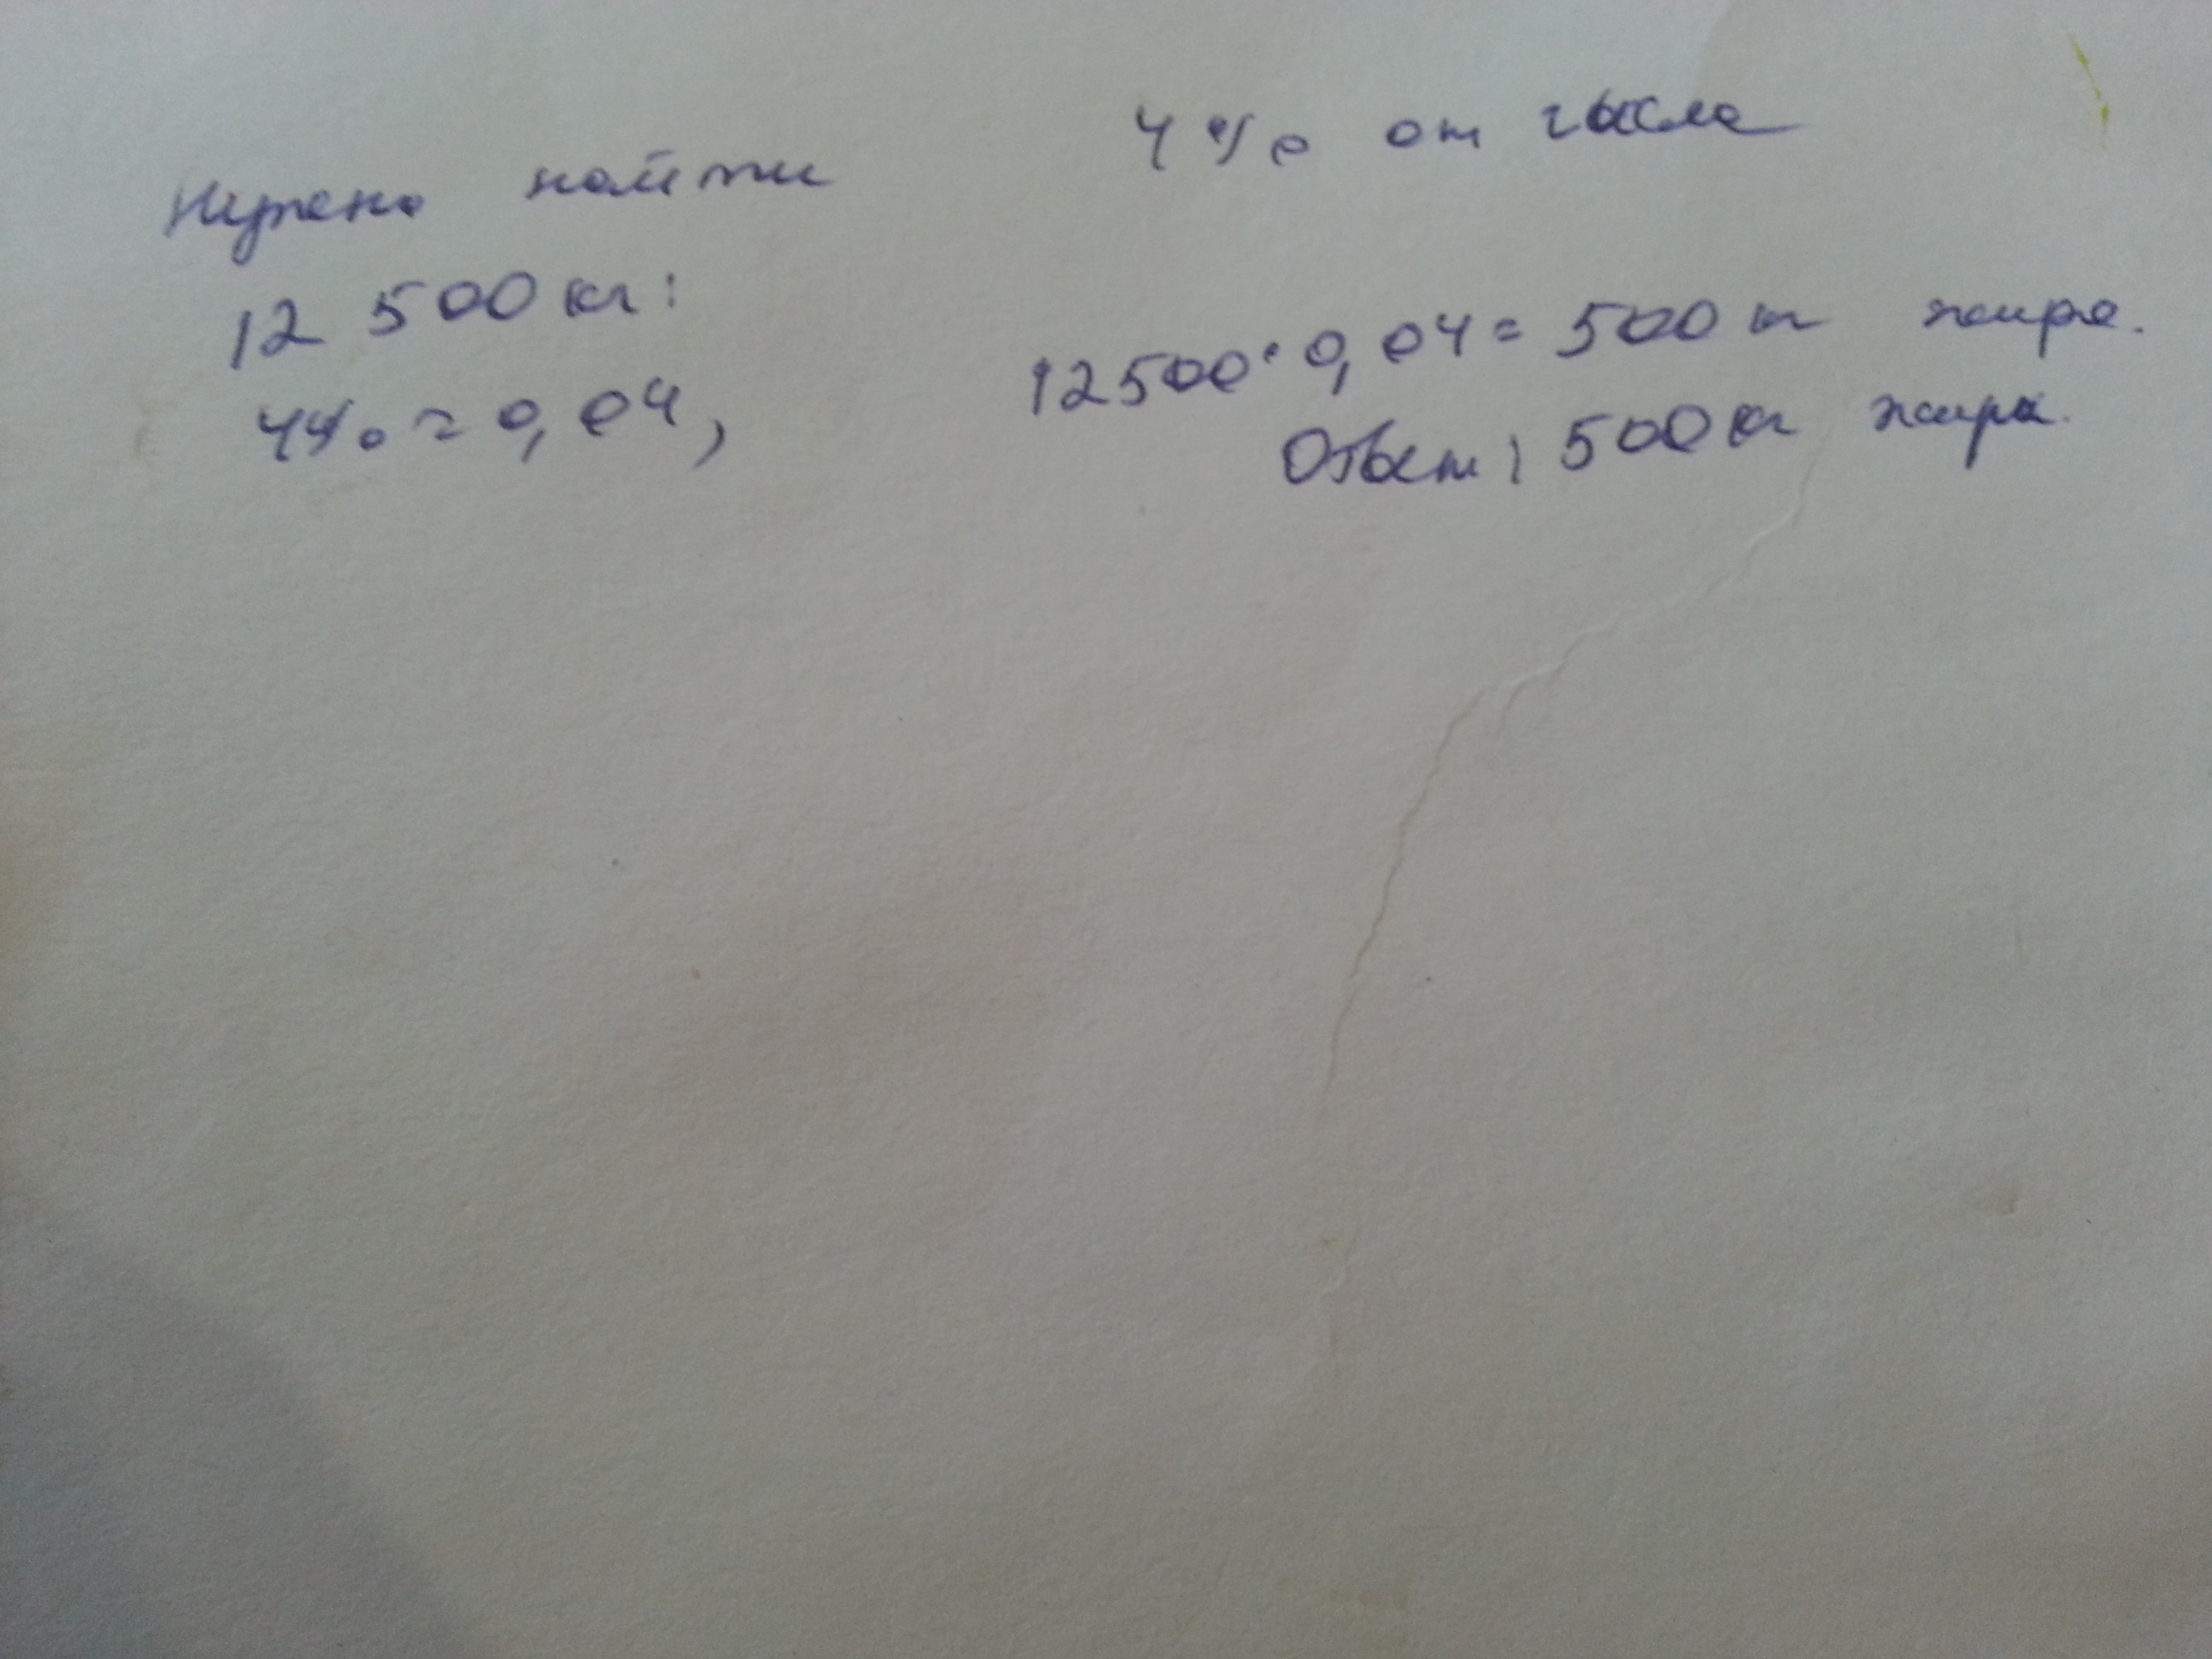 Нужно найти 4% от числа
12 500 кг:
4% = 0,04, 12500·0,04=500 кг жира.
Ответ: 500 кг жира.